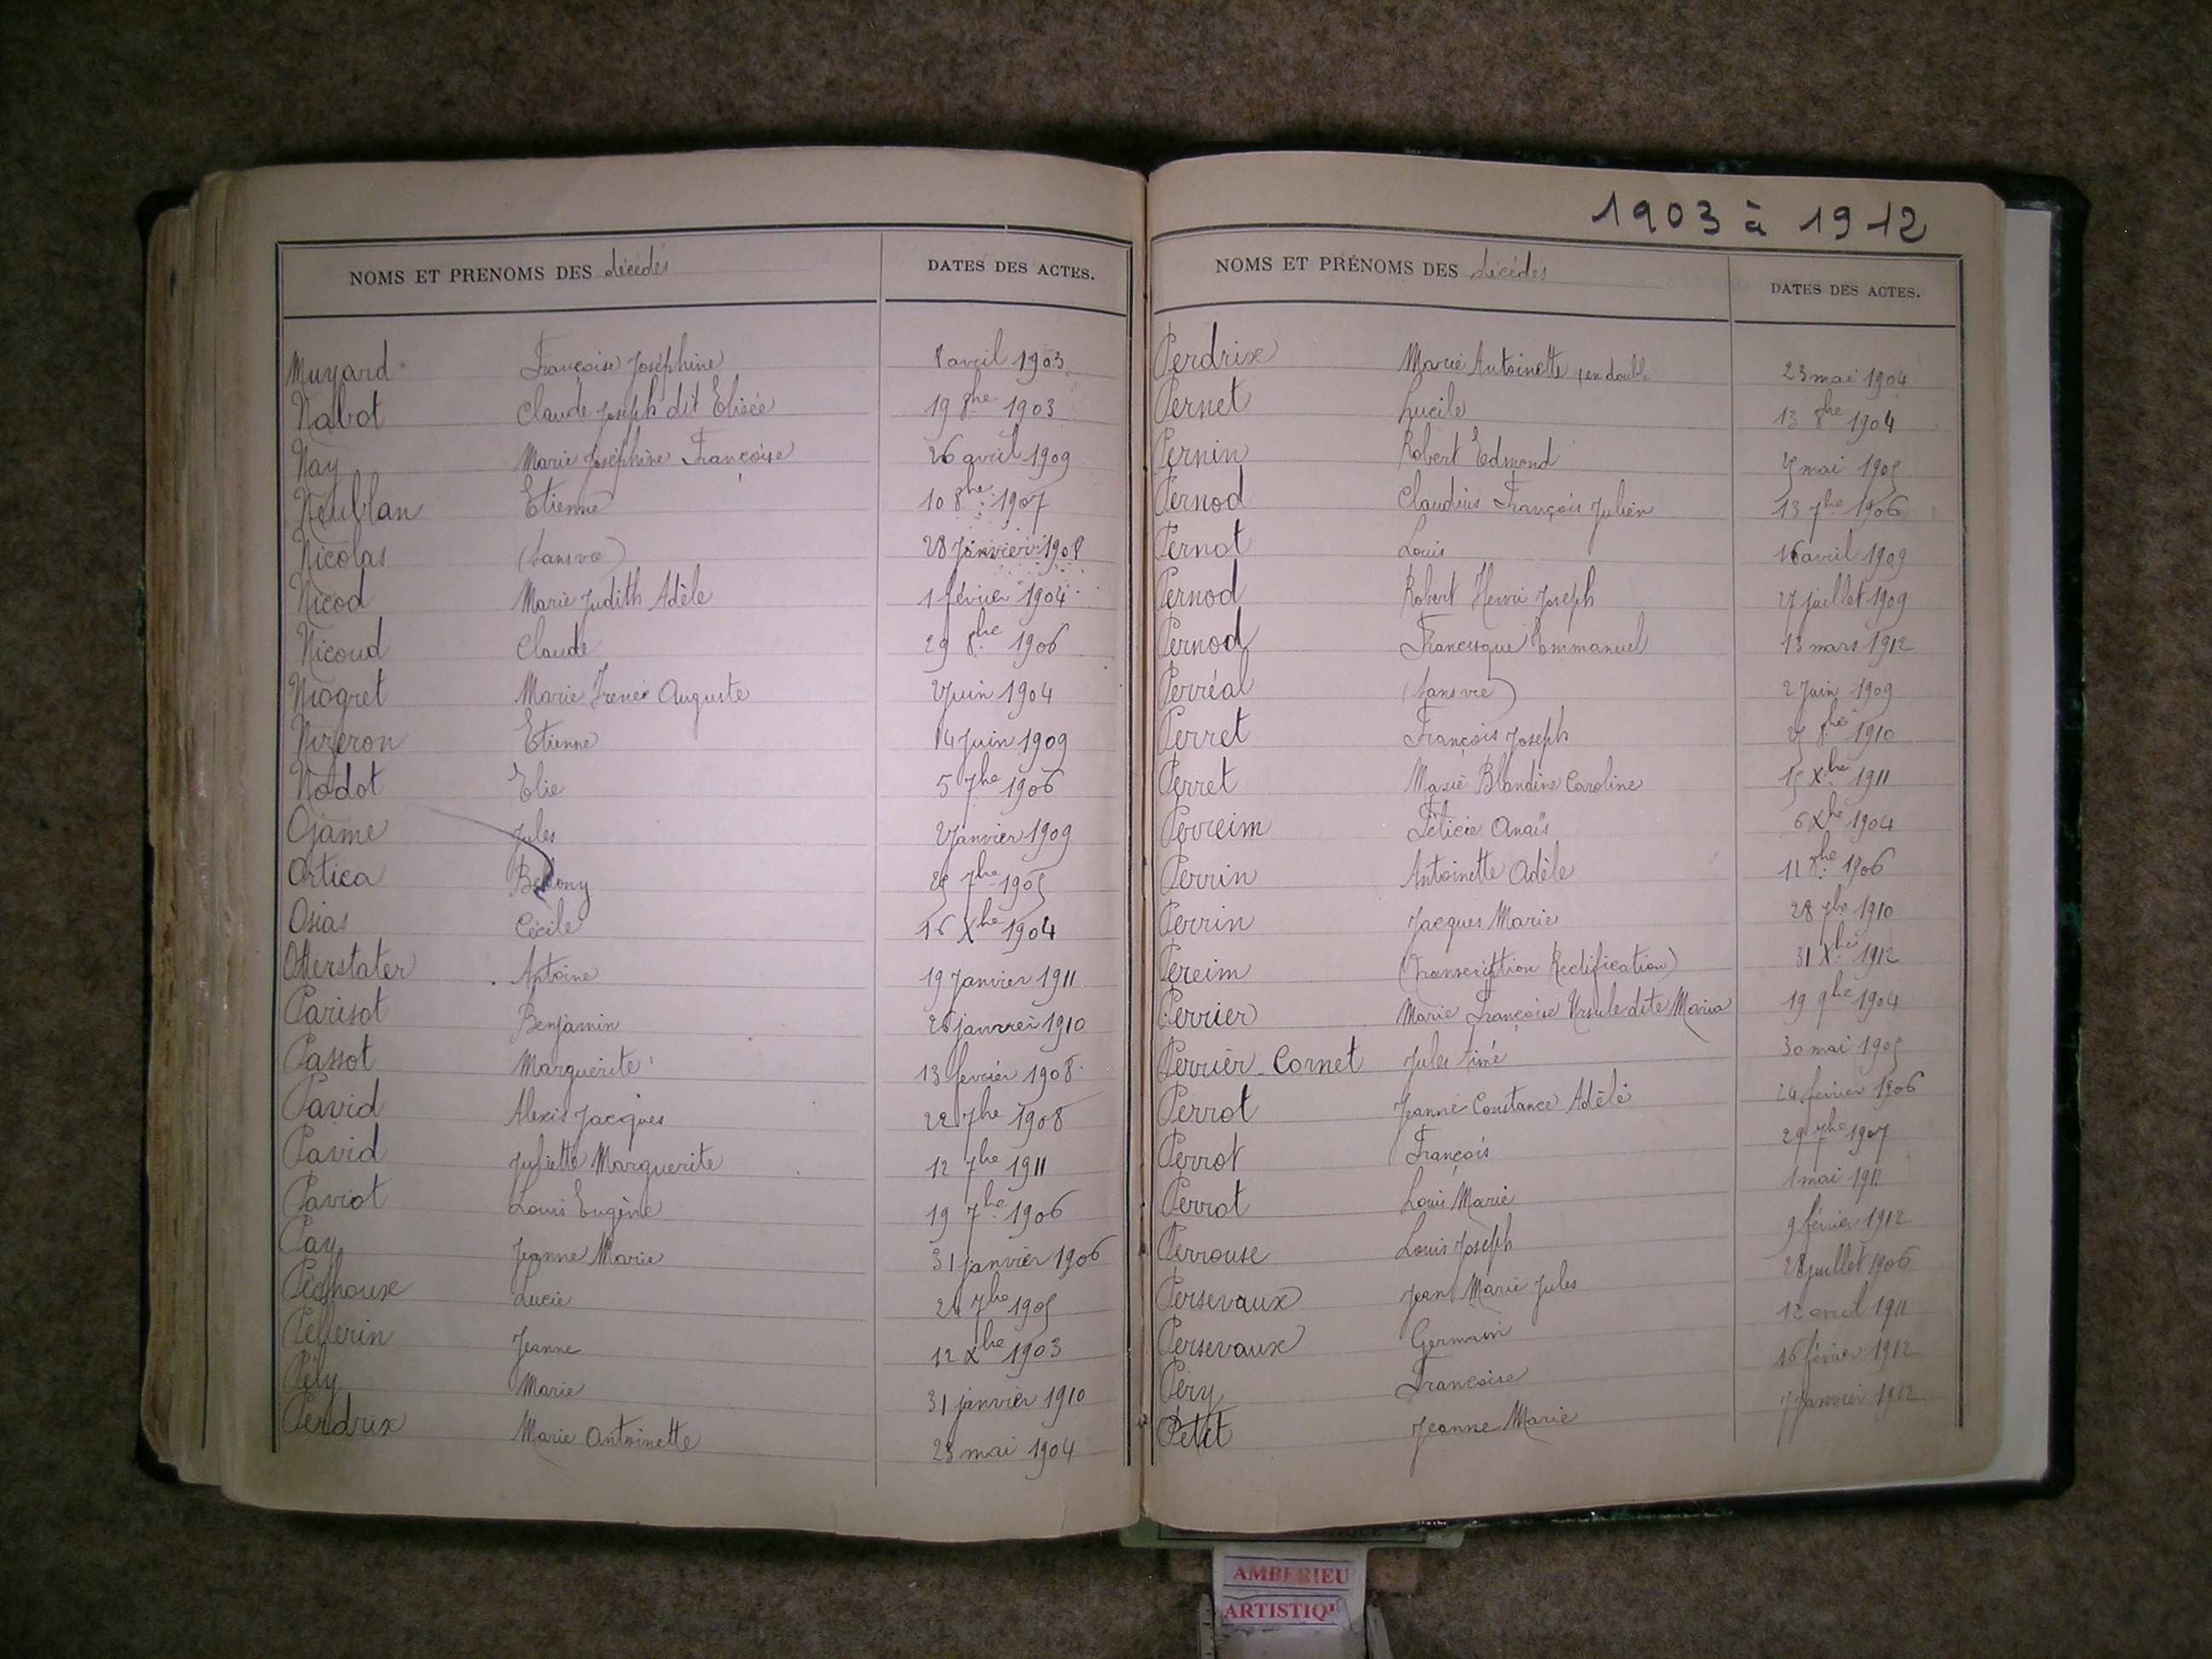 NOMS ET PRENOMS DES décédés DATES DES ACTES.
Muyard Françoise Joséphine 8 avril 1903
Nabot Claude Joseph dit Elisée 19 8bre 1903
Nay Marie Joséphine Françoise 26 avril 1909
Neublan Etienne 10 8bre 1907
Nicolas (Sans vie) 28 Janvier 1908
Nicod Marie Judith Adèle 1 février 1904
Nicoud Claude 29 8bre 1906
Niogret Marie Irenée Auguste Juin 1904
Nizeron Etienne 14 Juin 1909
Nodot Elie 5 7bre 1906
Ojame Jules janvier 1909
Ortica 7bre 1905
Osias Cécile 16 Xbre 1904
Otterstater Antoine 19 Janvier 1911
Parisot Benjamin janvier 1910
Passot Marguerite 13 février 1908
Pavid Alexis Jacques 22 7bre 1908
Pavid Juliette Marguerite 12 7bre 1911
Paviot Louis Eugène 19 7bre 1906
Pay Jeanne Marie 31 janvier 1906
Lucie 7bre 1905
Pellerin Jeanne 12 Xbre 1903
Pély Marie 31 janvier 1910
Perdrix Marie Antoinette 23 mai 1904
1903 à 1912
NOMS ET PRÉNOMS DES décédés DATES DES ACTES.
Perdrix Marie Antoinette (en double 23 mai 1904
Pernet Lucile 13 8bre 1904
Pernin Robert Edmond mai 1905
Pernod Claudius François Julien 13 7bre 1906
Pernot Louis 16 avril 1909
Pernod Robert Henri Joseph 27 juillet 1909
Pernod Francisque Emmanuel 13 mars 1912
Perréal (Sans vie) 2 Juin 1909
Perret François Joseph 8bre 1910
Perret Marie Blandine Caroline 15 Xbre 1911
Perreim Félicie Anaïs 6 Xbre 1904
Perrin Antoinette Adèle 8bre 1906
Perrin Jacques Marie 28 7bre 1910
Pereim (Transcription Rectification) 31 Xbre 1912
Perrier Marie Françoise Ursule dite Maria 19 9bre 1904
Perrier-Cornet Jules Aimé 30 mai 1905
Perrot Jeanne Constance Adèle 24 février 1906
Perrot François 29 7bre 1907
Perrot Louis Marie 1 mai
Perrouse Louis Joseph 9 février 1912
Persevaux Jean Marie Jules 28 juillet 1906
Persevaux Germain 12 avril 1911
Péry Françoise 16 février 1912
Petit Jeanne Marie 7 Janvier 1912
AMBERIEU
ARTISTIQ